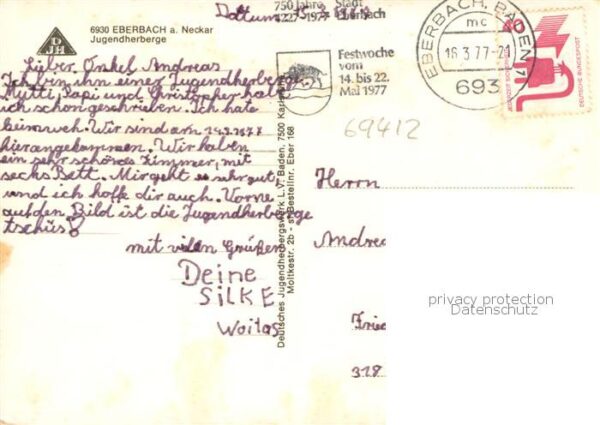 6930 EBERBACH a. Neckar
Jugendherberge
DJH
Dattum 15.3.1977
750 Jahre Stadt
1227-1977 Eberbach
Festwoche
vom
14. bis 22.
Mai 1977
EBERBACH, BADEN 1
mc
16.3.77-21
693
DEUTSCHE BUNDESPOST
69412
Lieber Onkel Andreas
Ich bin in einer Jugendherberge
Mutti Papi und Christopher hab
ich schon geschrieben. Ich hate
heimweh. Wir sind am 14.3.1977
hierangekommen. Wir haben
ein sehr schönes Zimmer, mit
sechs Bett. Mir geht es sehr gut
und ich hoffe dir auch. Vorne
auf den Bild ist die Jugendherberge
tschüs!
mit vilen Grüßen
Deine
SILKE
Woitas
Deutsches Jugendherbergswerk L.V. Baden, 7500 Karlsruhe
Moltkestr. 2b - Bestellnr. Eber 168
Herrn
Andrea
Frie
318
privacy protection
Datenschutz